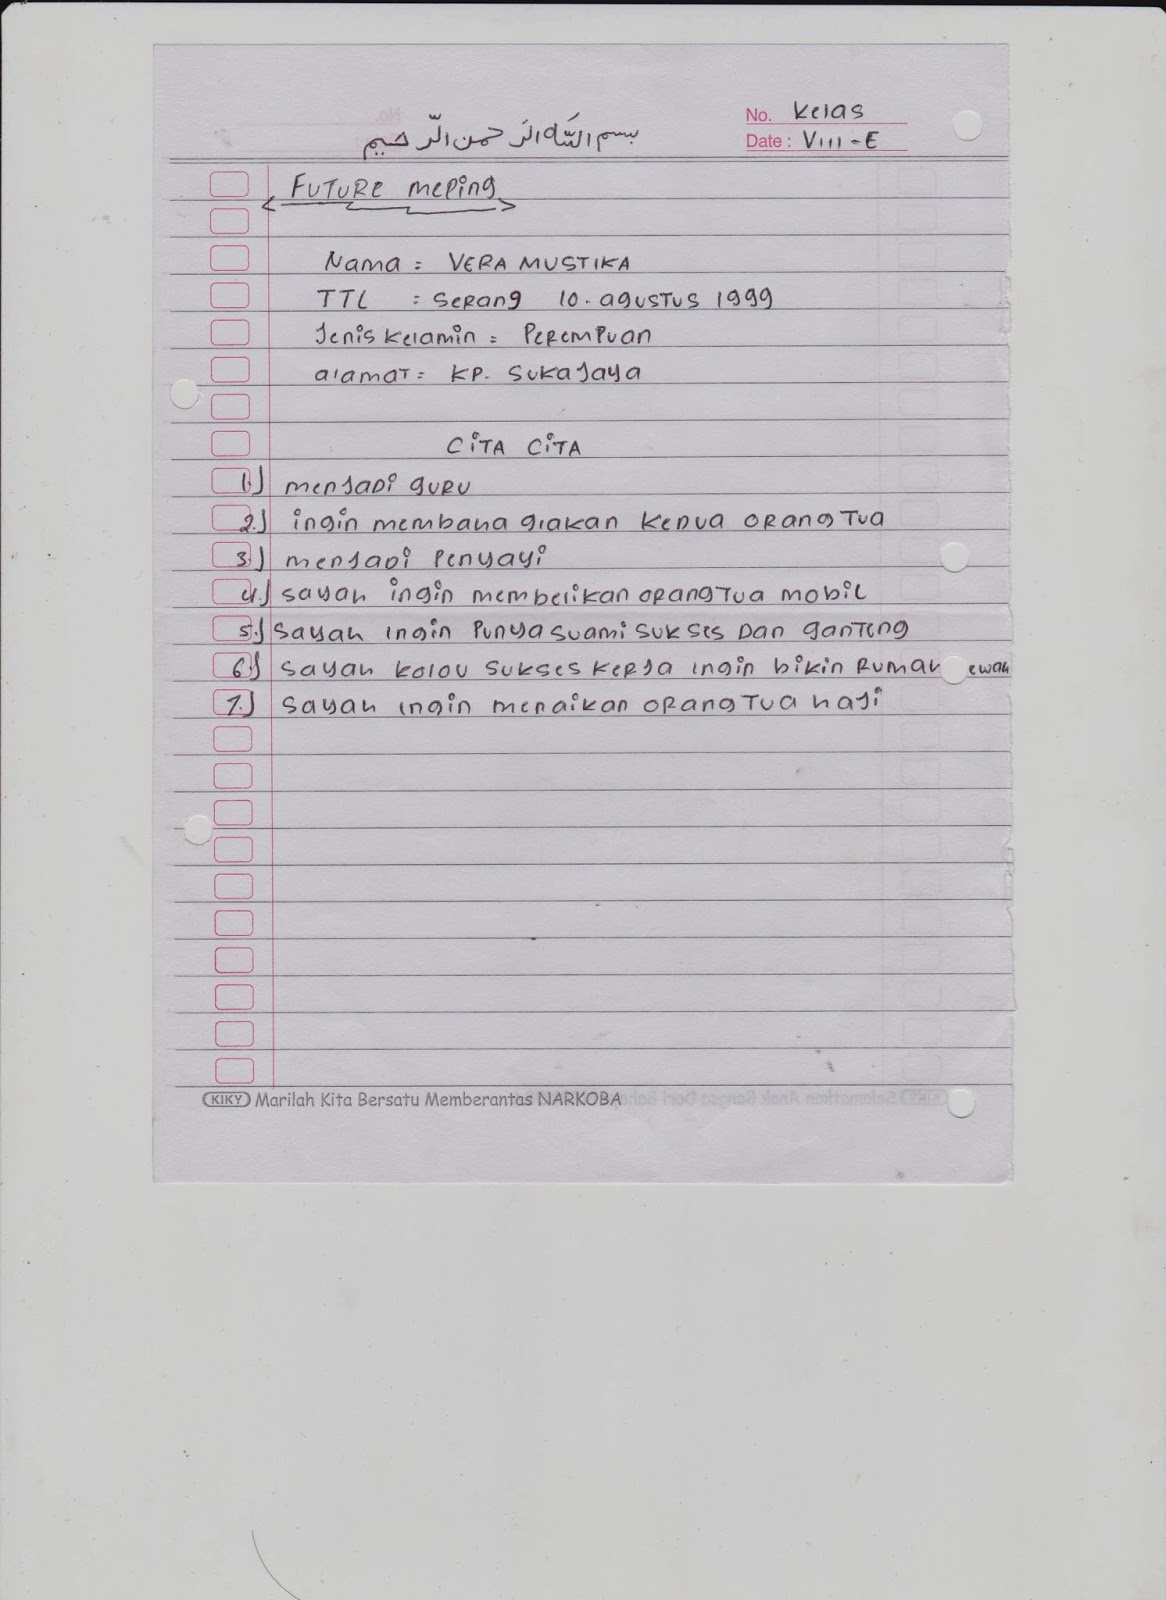 No. Kelas
بسم الله الرّحمن الرّحيم
Date : VIII - E
FUTURE mePing
Nama : VERA MUSTIKA
TTL : Serang 10 - agustus 1999
Jenis Kelamin : Perempuan
alamat : KP. Sukajaya
CITA CITA
1.) menjadi guru
2.) ingin membahagiakan kedua orang tua
3.) menjadi Penyayi
4.) sayah ingin membelikan orang tua mobil
5.) sayah ingin Punya suami sukses dan ganteng
6.) sayah kolou sukses kerja ingin bikin rumah ewah
7.) sayah ingin menaikan orang tua haji
KIKY Marilah Kita Bersatu Memberantas NARKOBA